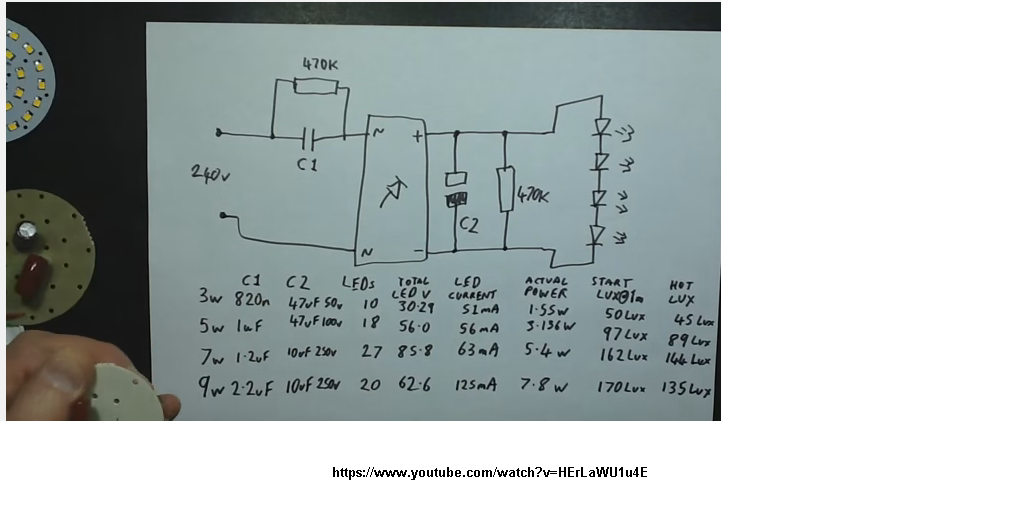 470K
C1
~
+
240v
470K
C2
~
-
C1 C2 LEDs TOTAL LED V LED CURRENT ACTUAL POWER START LUX@1m HOT LUX
3w 820n 47uF 50v 10 30.29 51mA 1.55w 50Lux 45Lux
5w 1uF 47uF 100v 18 56.0 56mA 3.136w 97Lux 89Lux
7w 1.2uF 10uF 250v 27 85.8 63mA 5.4w 162Lux 144Lux
9w 2.2uF 10uF 250v 20 62.6 125mA 7.8w 170Lux 135Lux
https://www.youtube.com/watch?v=HErLaWU1u4E